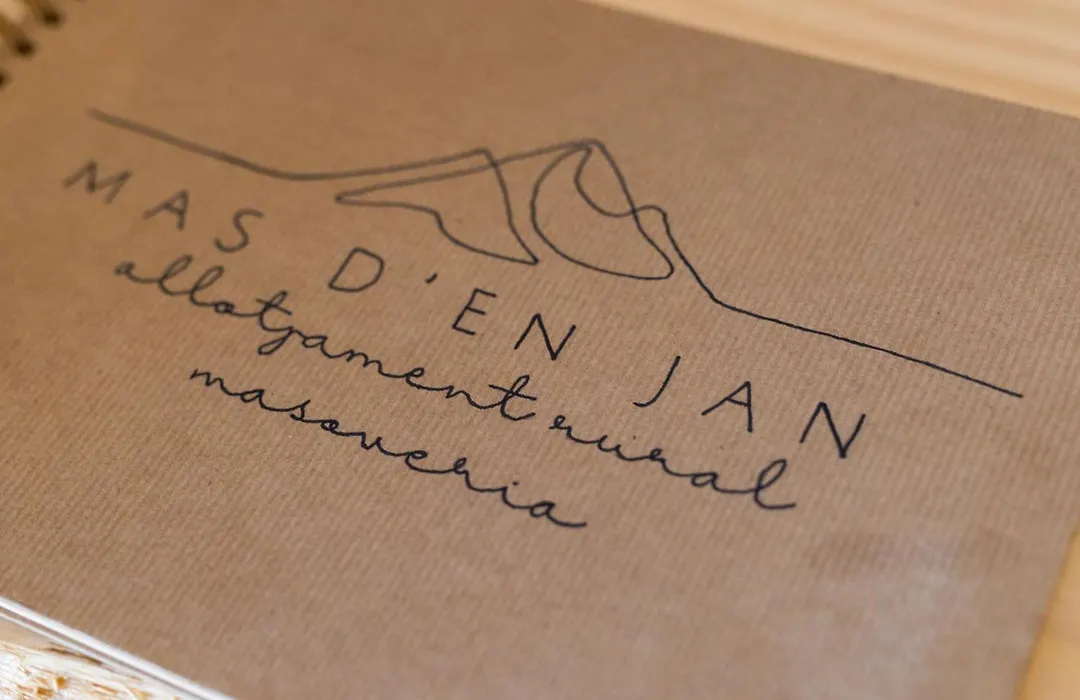 MAS D'EN JAN
allotjament rural
masoveria